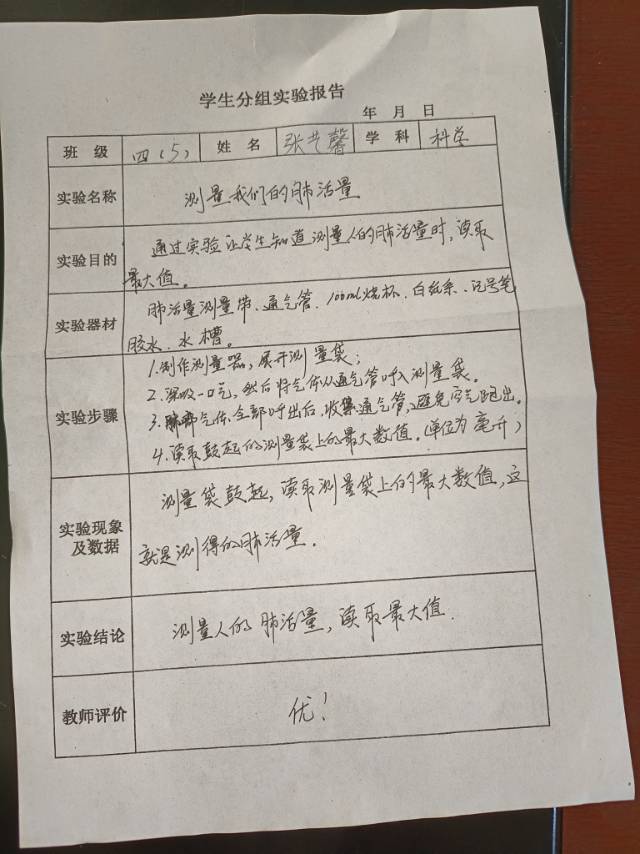 学生分组实验报告
年 月 日
班 级 四(5) 姓 名 张艺馨 学 科 科学
实验名称 测量我们的肺活量
实验目的 通过实验让学生知道测量人的肺活量时,读取
最大值。
实验器材 肺活量测量带、通气管、100ml烧杯、白纸条、记号笔
胶水、水槽。
实验步骤 1.制作测量器,展开测量袋;
2.深吸一口气,然后将气体从通气管呼入测量袋。
3.肺部气体全部呼出后,收集通气管,避免空气跑出。
4.读取鼓起的测量袋上的最大数值。(单位为毫升)
实验现象
及数据 测量袋鼓起,读取测量袋上的最大数值,这
就是测得的肺活量.
实验结论 测量人的肺活量,读取最大值.
教师评价 优!